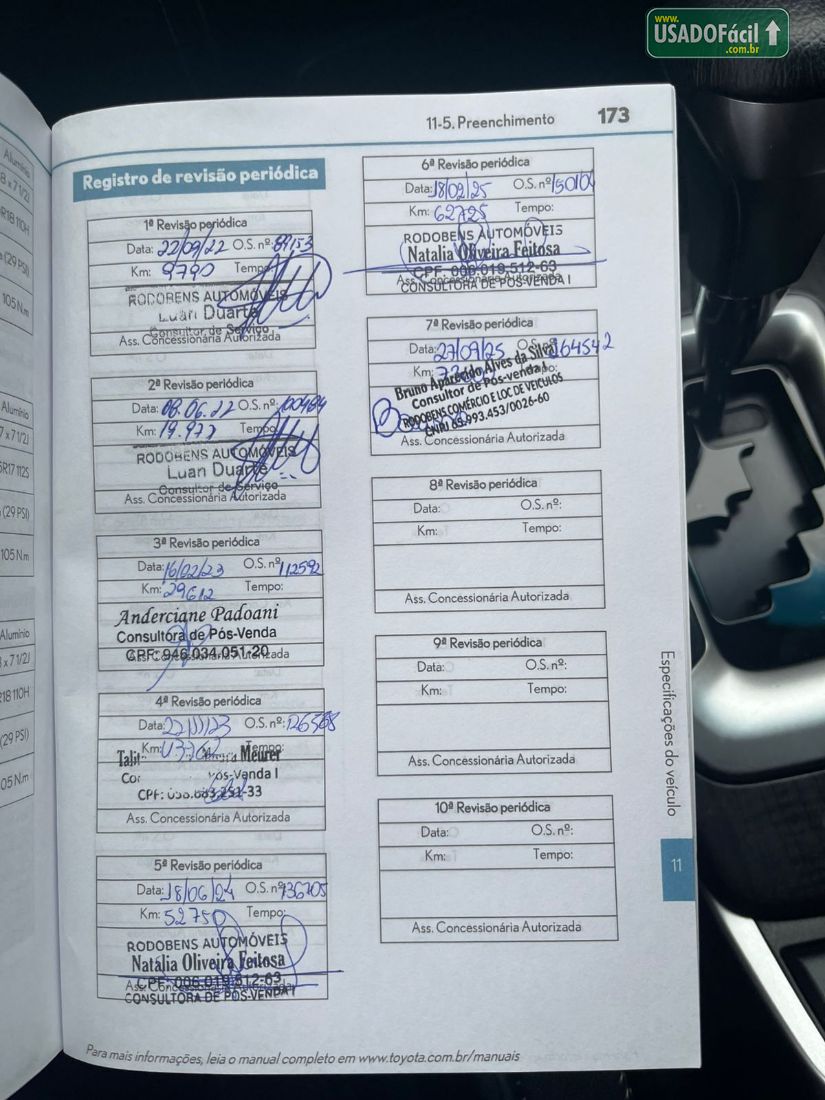 www.
USADOFácil
.com.br
11-5. Preenchimento 173
Registro de revisão periódica
1ª Revisão periódica
Data: 22/09/22 O.S. nº: 89153
Km: 9790 Tempo:
RODOBENS AUTOMÓVEIS
Luan Duarte
Consultor de Serviço
Ass. Concessionária Autorizada
2ª Revisão periódica
Data: 08.06.22 O.S. nº: 100484
Km: 19.977 Tempo:
RODOBENS AUTOMÓVEIS
Luan Duarte
Consultor de Serviço
Ass. Concessionária Autorizada
3ª Revisão periódica
Data: 16/02/23 O.S. nº: 112592
Km: 29612 Tempo:
Anderciane Padoani
Consultora de Pós-Venda
CPF: 946.034.051-20
Ass. Concessionária Autorizada
4ª Revisão periódica
Data: 22/11/23 O.S. nº: 126568
Km: Tempo:
Meurer
Pós-Venda I
CPF:
Ass. Concessionária Autorizada
5ª Revisão periódica
Data: 18/06/24 O.S. nº: 136705
Km: 52750 Tempo:
RODOBENS AUTOMÓVEIS
Natália Oliveira Feitosa
CPF: 006.019.512-63
Ass. Concessionária Autorizada
CONSULTORA DE PÓS-VENDA I
6ª Revisão periódica
Data: 18/02/25 O.S. nº
Km: 62725 Tempo:
RODOBENS AUTOMÓVEIS
Natalia Oliveira Feitosa
CPF: 006.019.512-63
Ass. Concessionária Autorizada
CONSULTORA DE PÓS-VENDA I
7ª Revisão periódica
Data: 27/09/25 O.S. nº 164542
Km: Tempo:
Bruno Aparecido Alves da Silva
Consultor de Pós-venda I
RODOBENS COMÉRCIO E LOC DE VEICULOS
CNPJ 65.993.453/0026-60
Ass. Concessionária Autorizada
8ª Revisão periódica
Data: O.S. nº:
Km: Tempo:
Ass. Concessionária Autorizada
9ª Revisão periódica
Data: O.S. nº:
Km: Tempo:
Ass. Concessionária Autorizada
10ª Revisão periódica
Data: O.S. nº:
Km: Tempo:
Ass. Concessionária Autorizada
Especificações do veículo
11
Para mais informações, leia o manual completo em www.toyota.com.br/manuais
Alumínio
8 x 7 1/2J
R18 110H
(29 PSI)
105 N.m
Alumínio
7 x 7 1/2J
5R17 112S
(29 PSI)
105 N.m
Alumínio
8 x 7 1/2J
R18 110H
(29 PSI)
105 N.m